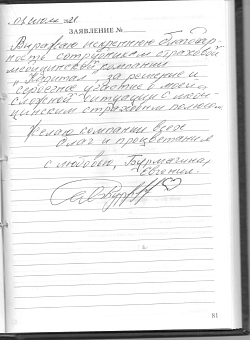 01 июля 21.
ЗАЯВЛЕНИЕ №
Выражаю искреннюю благодар-
ность сотрудникам страховой
медицинской компании
"Капитал" за решение и
сердечное участие в моей
сложной ситуации с меди-
цинским страховым полисом.
Желаю компании всех
благ и процветания
с любовью, Бурмагина
Евгения.
81